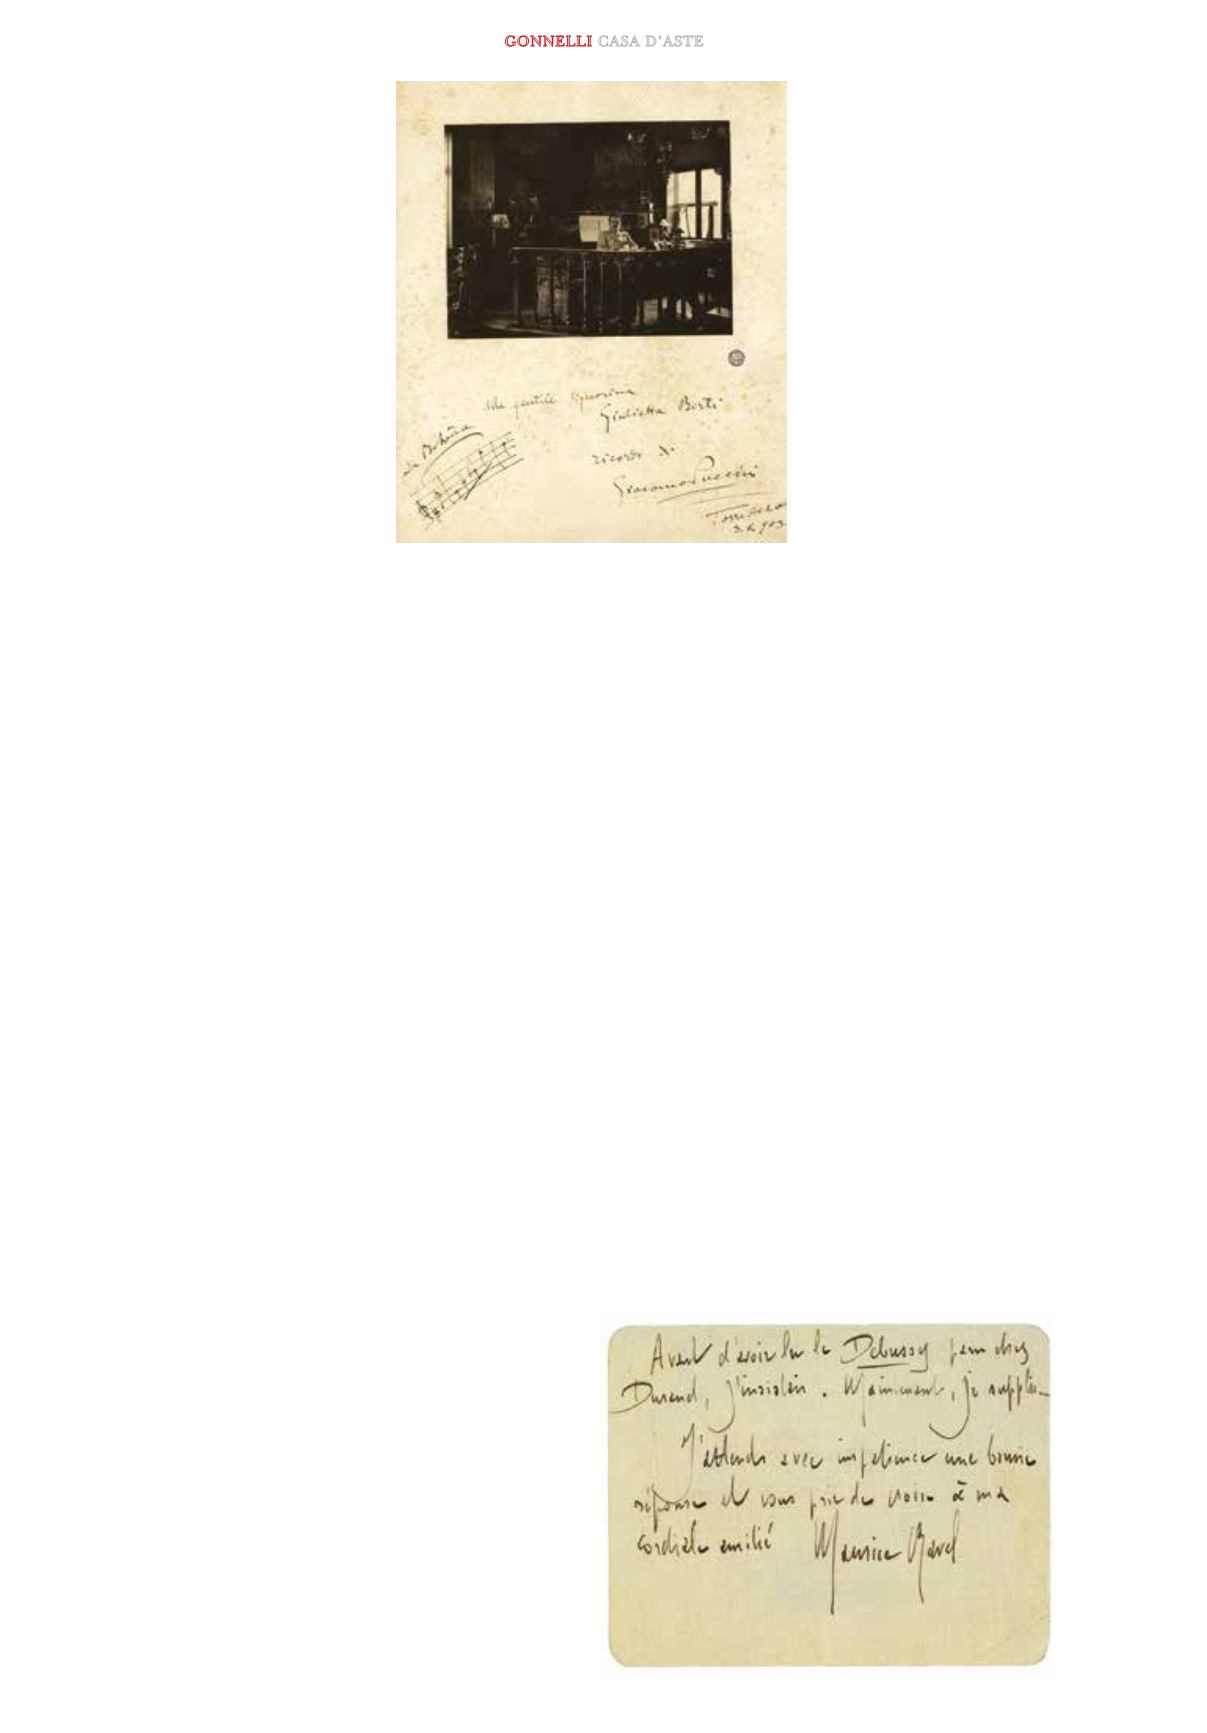 GONNELLI CASA D'ASTE
Alla gentile Signorina
Giulietta Berti
La Bohème
ricordo di
Giacomo Puccini
903
Avant d'avoir lu le Debussy paru chez
Durand, j'insistais. Maintenant, je supplie
J'attends avec impatience une bonne
réponse et vous prie de croire à ma
cordiale amitié Maurice Ravel